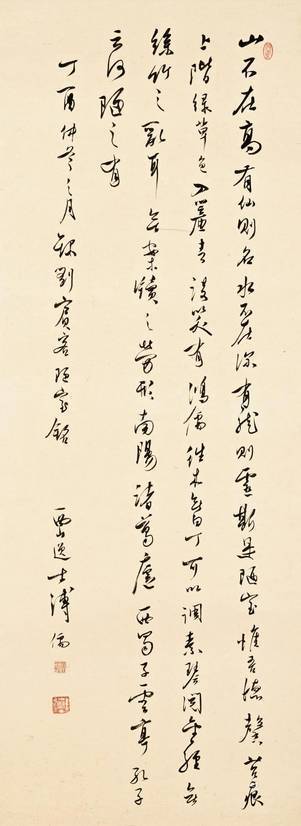 山不在高有仙則名水不在深有龍則靈斯是陋室惟吾德馨苔痕
上階綠草色入簾青談笑有鴻儒往來無白丁可以調素琴閱金經無
絲竹之亂耳無案牘之勞形南陽諸葛廬西蜀子雲亭孔子
云何陋之有
丁酉仲之月錄劉賓客陋室銘
西山逸士溥儒